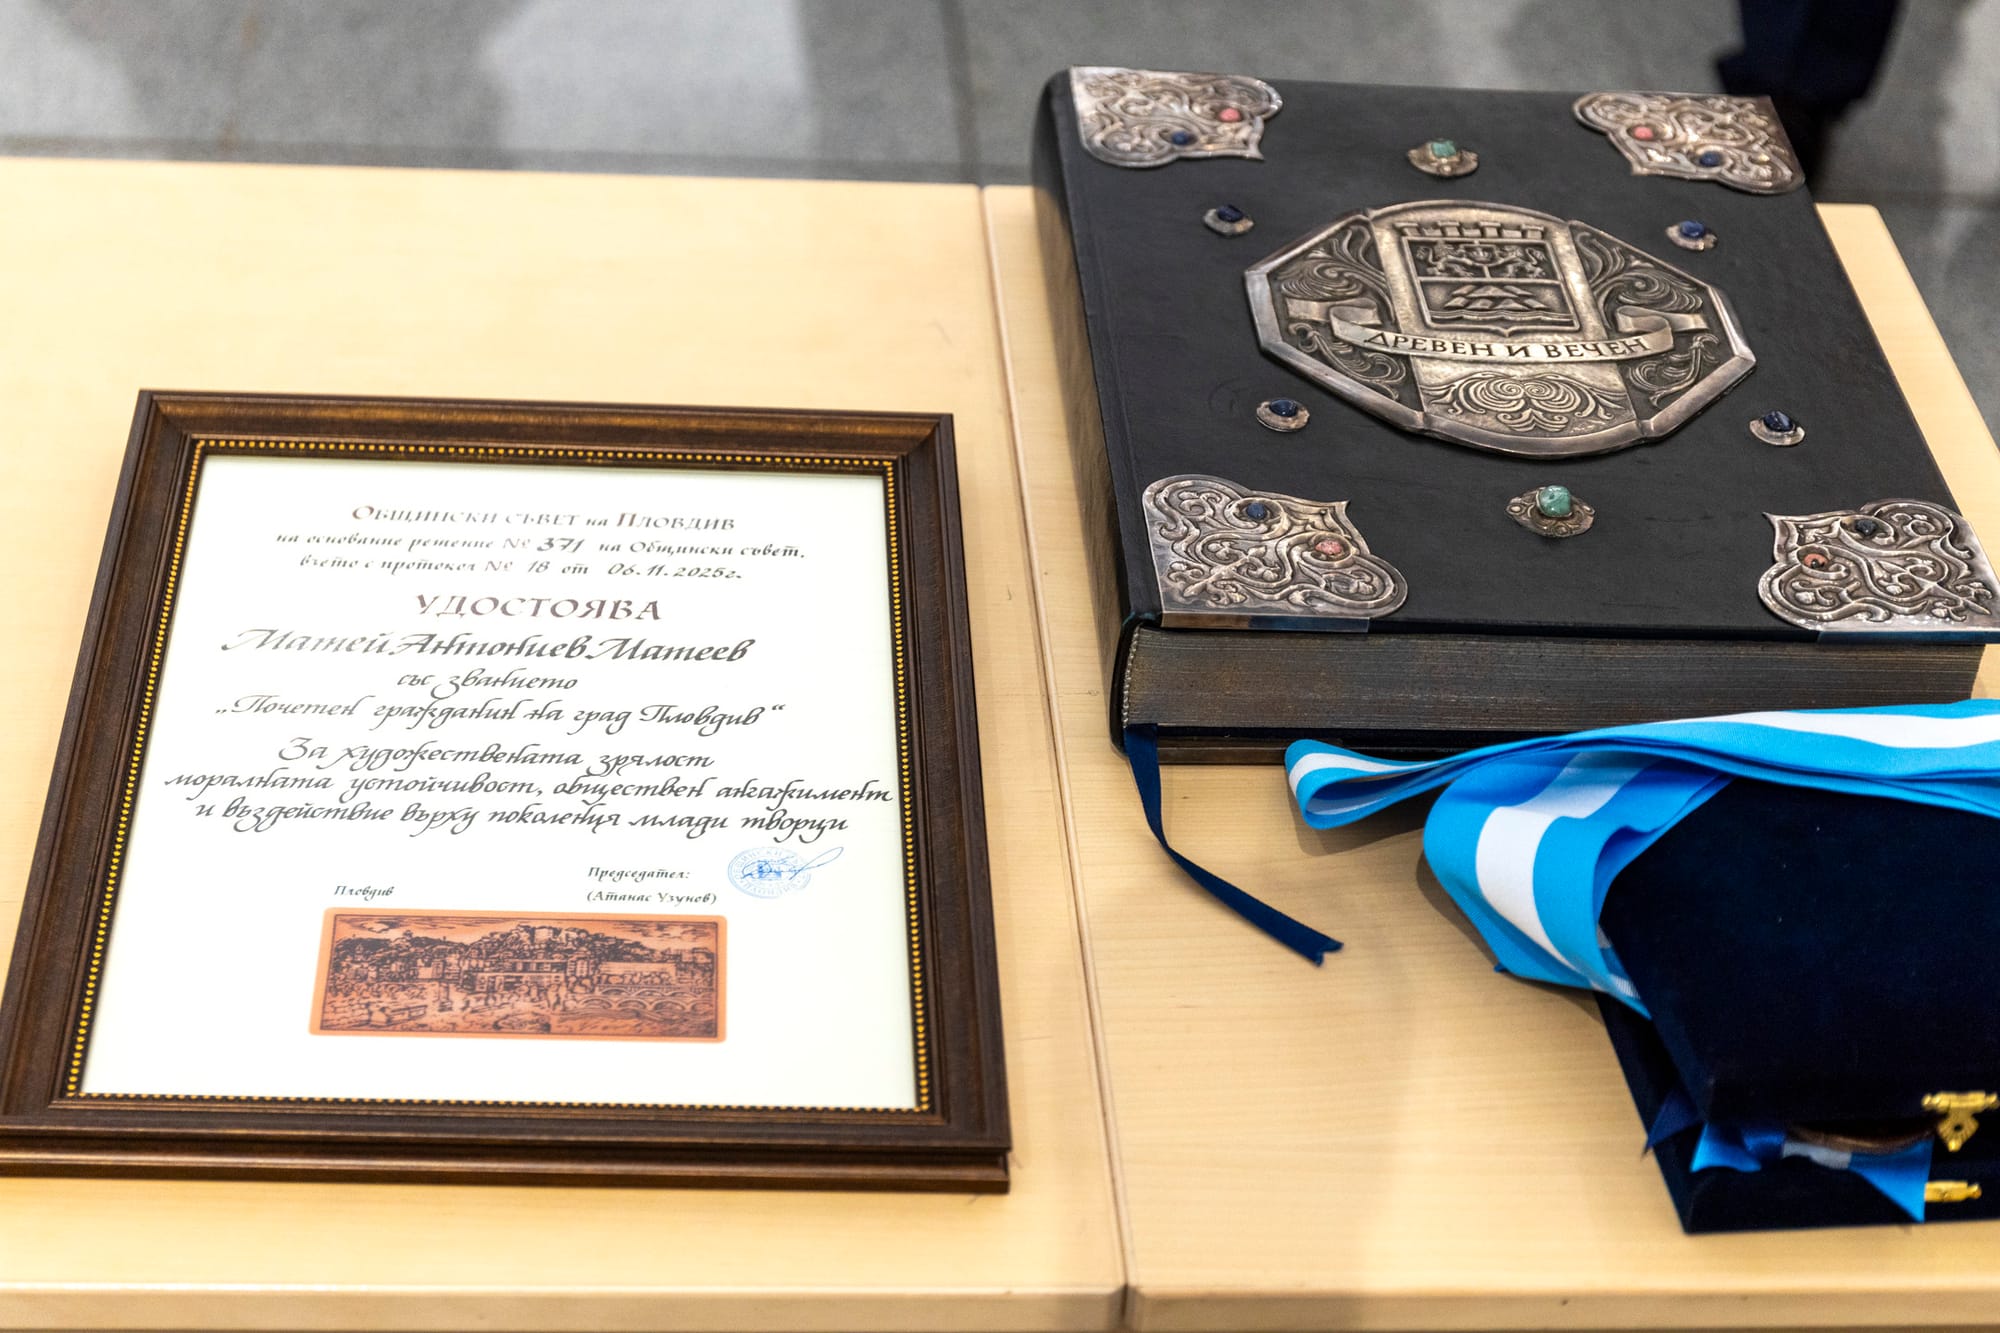 Общински съвет на Пловдив
на основание решение № 371 на Общински съвет,
взето с протокол № 18 от 06.11.2025г.
УДОСТОЯВА
Матей Антониев Матеев
със званието
„Почетен гражданин на град Пловдив“
За художествената зрялост
моралната устойчивост, обществен ангажимент
и въздействие върху поколения млади творци
Председател:
Пловдив
(Атанас Узунов)
ДРЕВЕН И ВЕЧЕН